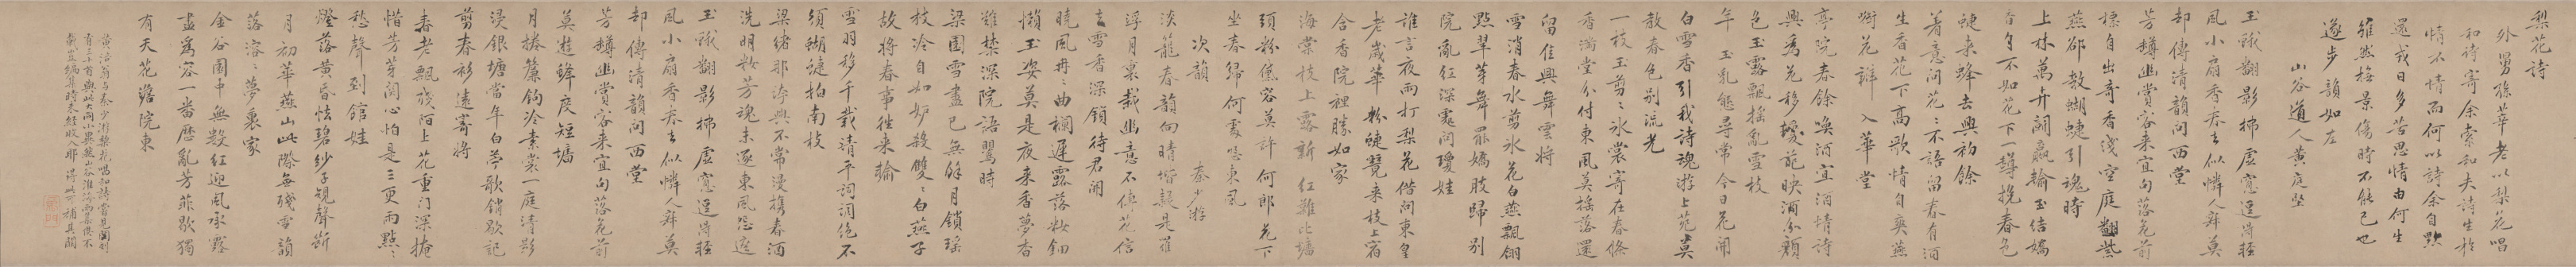 梨花詩
外舅孫莘老以梨花唱
和詩寄余索和夫詩生於
情不情而何以詩余自
還我日多苦思情由何生
雖然撫景傷時不能已也
遂步韻如左
山谷道人黃庭堅
玉蛾翻影拂虛窗逗得輕
風小扇香吞去似憐人辭莫
却傳清韻問西堂
芳樽幽賞客来宜向落花前
標自出奇香淺空庭翻紫
燕邻教蝴蝶引魂時
上林萬卉鬪贏輸玉結嬌
香自不如花下一樽挽春色
蜨来蜂去興初餘
着意問花花不語留春有酒
生香花下高歌情自爽燕
啣花辭入華堂
亭院春餘喚酒宜酒情詩
興秀花移曖範映酒分顏
色玉露飄搖亂雪枝
年玉亂態尋常今日花開
白雪香引我詩魂游上苑莫
教春色别流光
一枝玉剪剪冰裳寄在春條
香滿堂分付東風莫摇落還
留佳興舞雲將
雪消春水剪冰花白燕飄翎
點翠芽舞罷嬌肢歸别
院亂紅深處問瓊娃
誰言夜雨打梨花借問東皇
老歲華粉蜨雙来枝上宿
合香院裡勝如家
海棠枝上露新紅雖比墻
頭粉黛容莫許何郎花下
坐春歸何處怨東風
次韻 秦少游
淡籠春韻向晴堦疑是嫦
浮月裏栽幽意不傳花信
去雪香深鎖待君開
曉風冉曲欄遲露落妝鈿
懶玉姿莫是夜来香夢杳
難禁深院語鶯時
梁園雪盡已無餘月鎖瑶
枝冷自如妒殺雙雙白燕子
故將春事往来輸
雪羽移于栽清平詞調絶不
須蝴蜨拍南枝
梁緒那浮興不常漫携春酒
洗明妝芳魂未逐東風怨遮
玉蛾翻影拂虛窗逗得輕
風小扇香吞去似憐人辭莫
却傳清韻問西堂
芳樽幽賞客来宜向落花前
莫遊蜂度短墻
月捲簾鈎冷素裳一庭清影
浸銀塘當年白苧歌銷歇記
剪春衫遠寄將
春老飄殘陌上花重门深掩
惜芳芽關心怕是三更雨點點
愁聲到館娃
燈落黄昏怯碧紗子規聲斷
月初華燕山此際無殘雪韻
落溶溶夢裏家
金谷園中無數紅迎風承露
盡為容一番歷亂芳菲歇獨
有天花澹院東